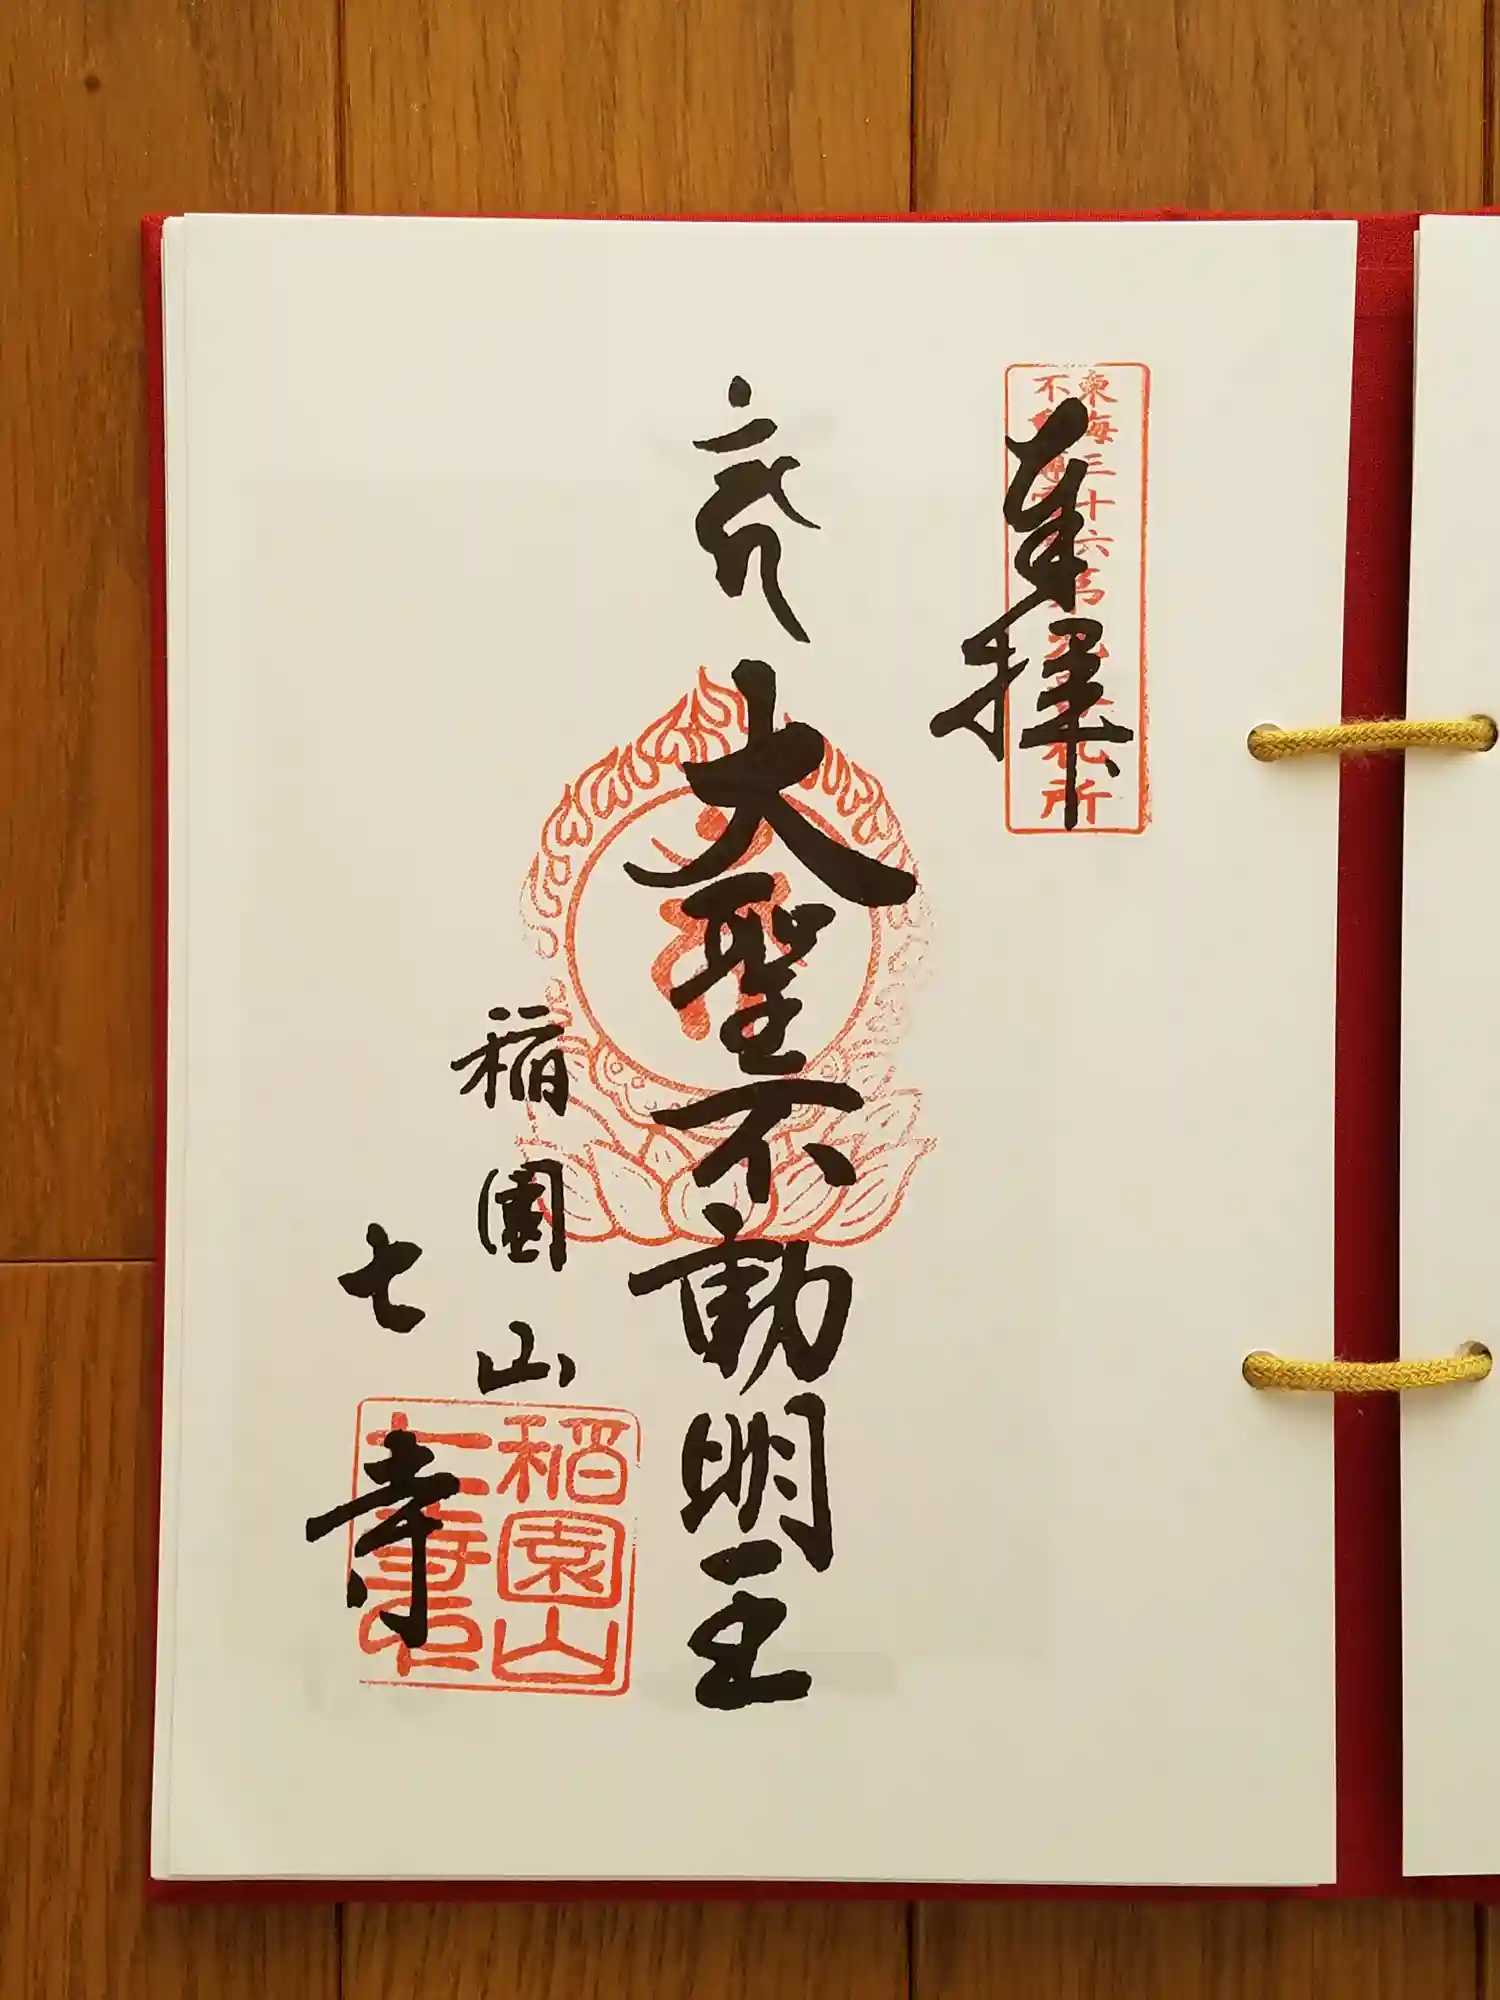 奉拝
東海三十六
不動尊霊場
第九番札所
大聖不動明王
稲園山
七寺
稲園山
七寺印